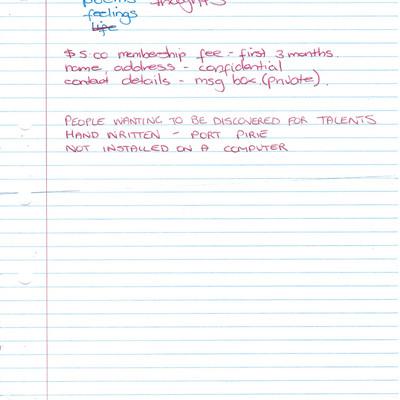 poems thoughts
feelings
life
$5.00 membership fee - first 3 months.
name, address - confidential
contact details - msg box. (private).
PEOPLE WANTING TO BE DISCOVERED FOR TALENTS
HAND WRITTEN - PORT PIRIE
NOT INSTALLED ON A COMPUTER